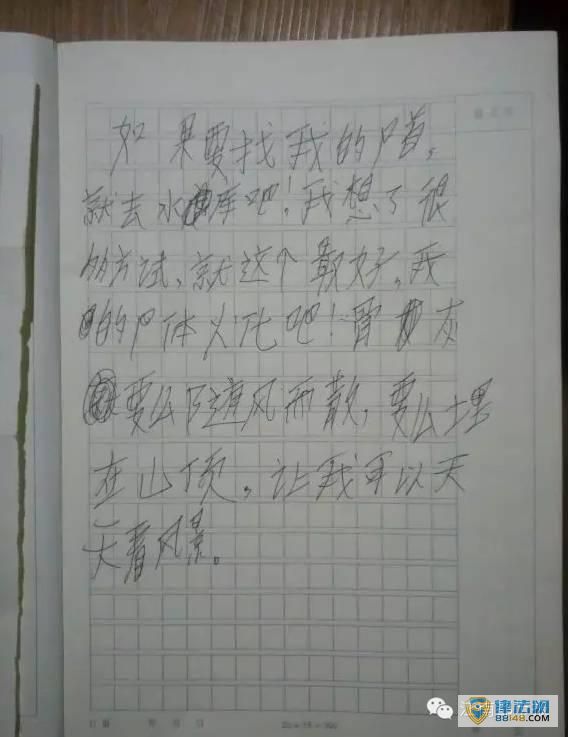 如果要找我的尸首，
就去水库吧！我想了很
多方试，就这个最好，我
的尸体火化吧！骨灰
要么随风而散，要么埋
在山顶，让我可以天
天看风景。
律法网
88148.com